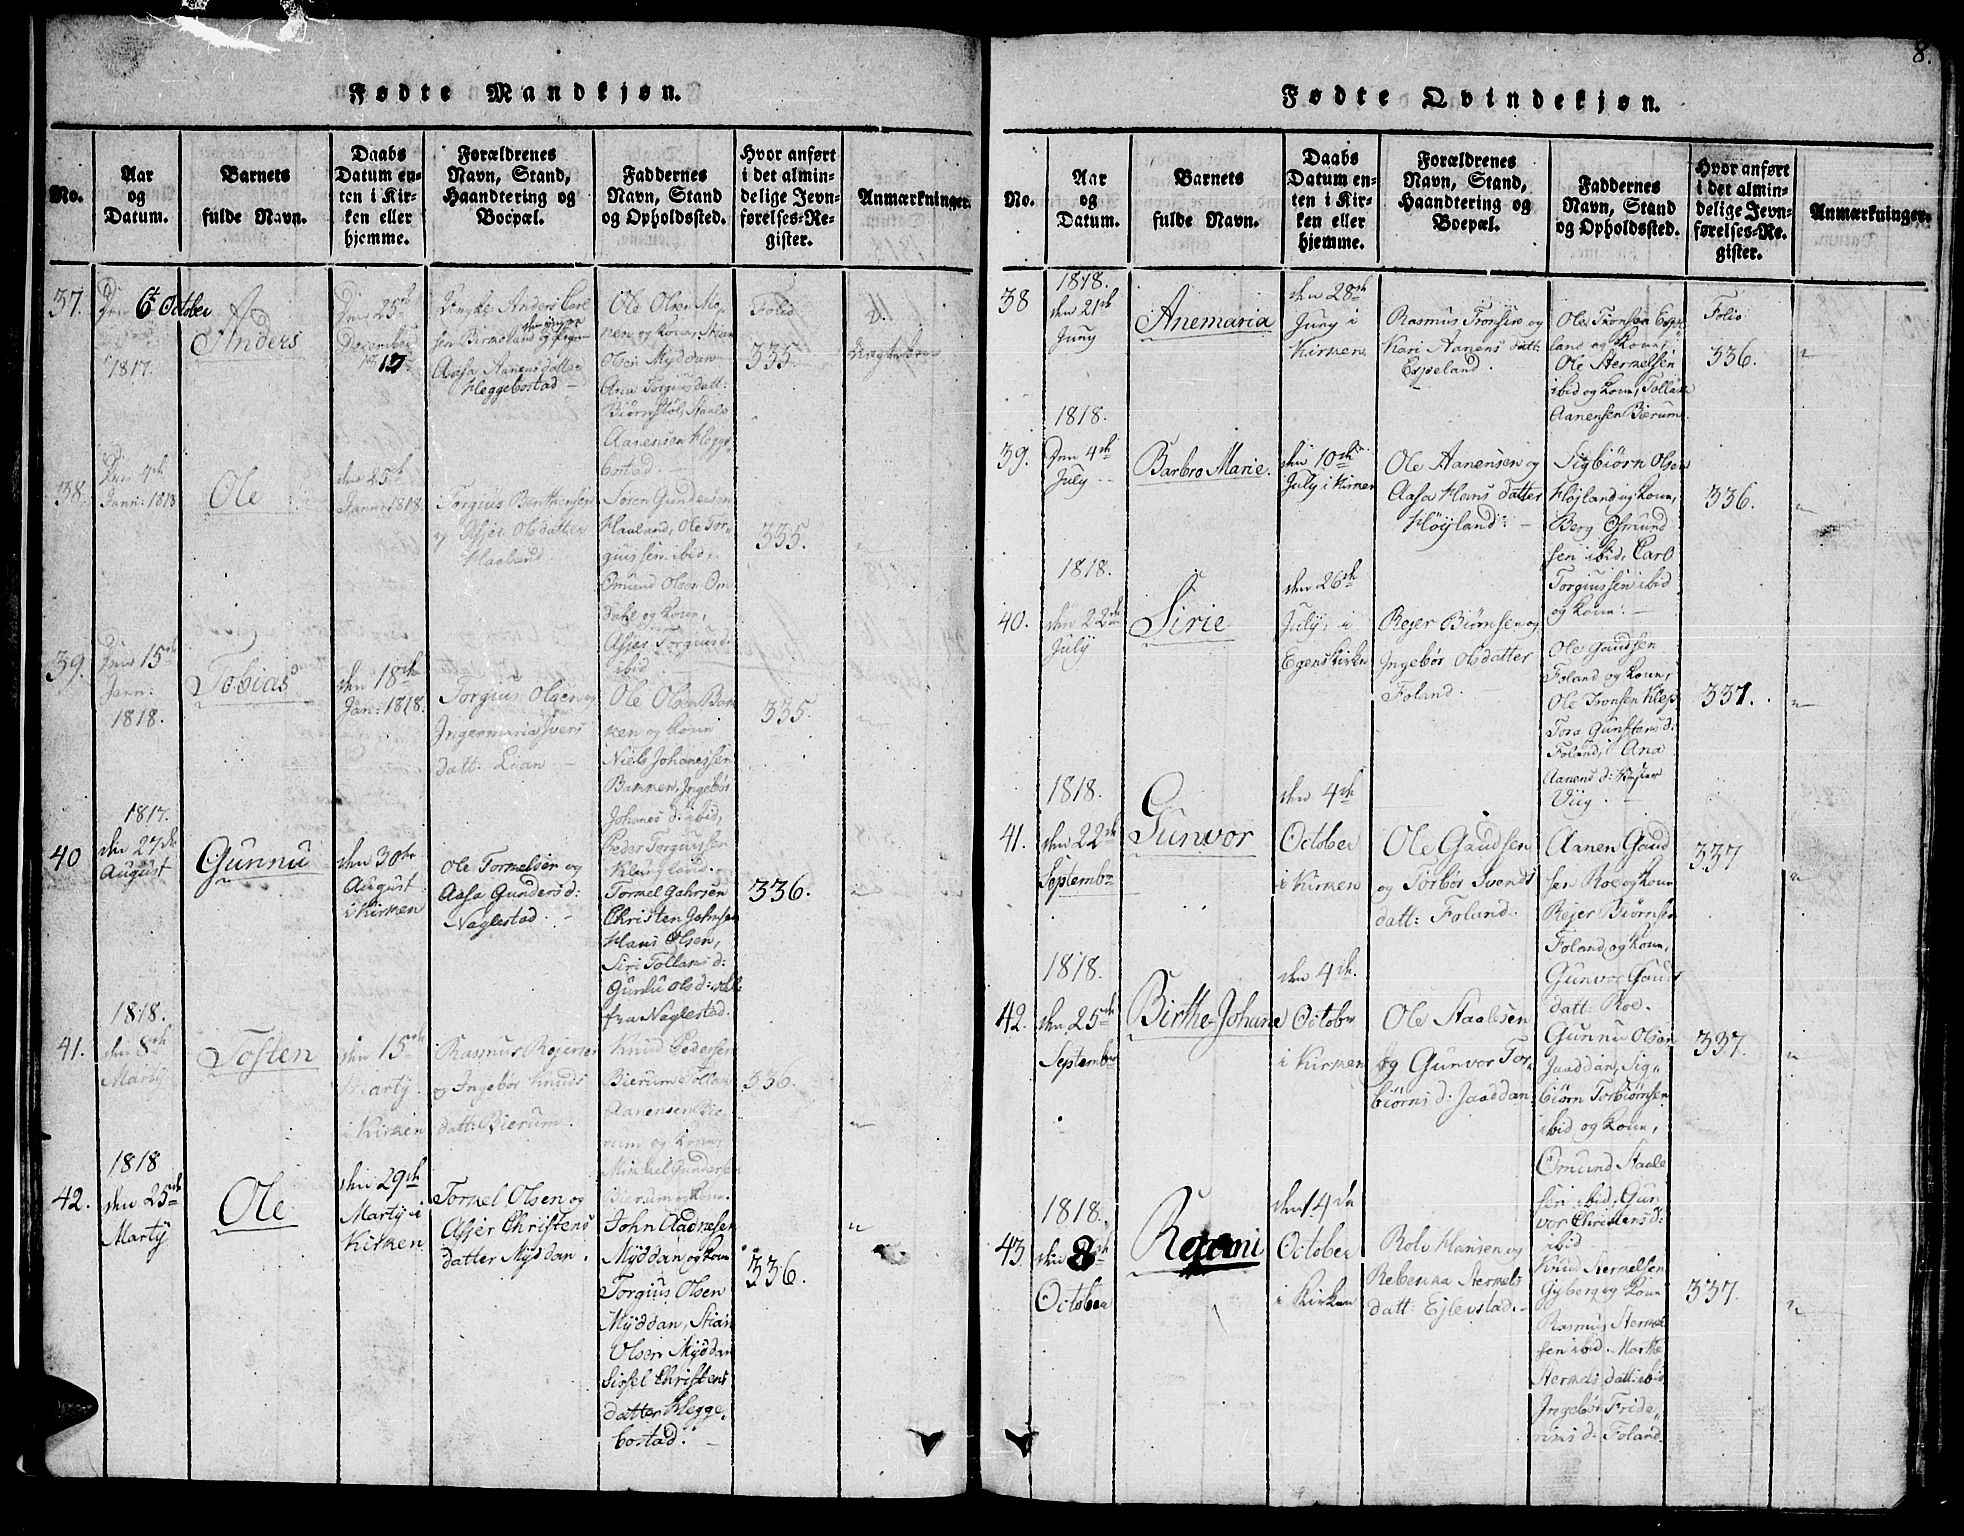 8.
Fødte Mandkjøn.
No.
Aar
og
Datum.
Barnets
fulde Navn.
Daabs
Datum en-
ten i Kir-
ken eller
hjemme.
Forældrenes
Navn, Stand,
Haandtering og
Boepæl.
Faddernes
Navn, Stand
og Opholdssted.
Hvor anført
i det almin-
delige Jevn-
førelses-Re-
gister.
Anmærkninger.
37.
Den 6t October
1817.
Anders
Den 25de
December
Anders Carl
sen Birkeland og
Aasa Aanens datter
Heggebostad
Ole Olsen
og Kone, Stian
Olsen Myddan
Ana Torgius datt:
Biørnstøl, Staale
Aanensen Hegge
bostad.
Folio
335.
38.
Den 4de
Janu: 1818
Ole
den 25de
Janu: 1818.
Torgius Benthsen
og Assie Olsdatter
Haaland.
Søren Gundersen
Haaland, Ole Tor-
giussen ibid,
Omund Olsen Om
dahl og Kone,
Assie Torgius d:
ibid
335.
39.
Den 15de
Jan:
1818.
Tobias
den 18de
Jan: 1818.
Torgius Olsen og
Ingermaria Ivers
datt: Lian
Ole Olsen Ban
ken og Kone
Niels Johanessen
Banken, Ingebør
Johanes d: ibid,
Peder Torgiussen
Klungland.
335.
40
1817.
den 27de
August
Gunnu
den 30te
August
i Kirken
Ole Tormelsen og
Aasa Gunders d:
Naglestad.
Tormel Gahrsen
Christen Johnsen
Hans Olsen,
Siri Tollans d:
Gunlu Ols d: alle
fra Naglestad.
336.
41.
1818.
den 8de
Martÿ
Tosten
den 15de
Martÿ
i Kirken
Rasmus Rejersen
og Ingebør Knuds
datt: Bierum.
Knud Pedersen
Bierum, Tollan
Aanensen Bie
rum og Kone,
Mikkel Gundersen
Bierum og Kone.
336.
42.
1818
den 25de
Martÿ
Ole
den 29de
Martÿ i
Kirken
Tormel Olsen og
Assier Christens
datter Myddan.
John Aadnesen
Myddan og Kone
Torgius Olsen
Myddan, Stian
Olsen Myddan
Sissel Christens
datter Hegge-
bostad.
336.
Fødte Qvindekjøn.
No.
Aar
og
Datum.
Barnets
fulde Navn.
Daabs
Datum en-
ten i Kir-
ken eller
hjemme.
Forældrenes
Navn, Stand,
Haandtering og
Boepæl.
Faddernes
Navn, Stand
og Opholdssted.
Hvor anført
i det almin-
delige Jevn-
førelses-Re-
gister.
Anmærkninger.
38
1818.
den 21de
Juny
Anemaria
den 28de
Juny i
Kirken
Rasmus Tronsen og
Kari Aanens datt:
Espeland.
Ole Tronsen Espe
land og Kone,
Ole Stermelsen
ibid og Kone, Tollak
Aanensen Bierum.
Folio
336.
39.
1818.
Den 4de
July
Barbro Marie.
den 10de
July i Kirken
Ole Aanensen og
Aasa Hans datter
Høÿland
Sigbiørn Olsen
Højland og Kone,
Berg Osmund
sen ibid, Carl
Torgiussen ibid
og Kone.
336.
40.
1818.
den 22de
July
Sirie
den 26de
July, i
Egenskirken
Rejer Biørnsen og
Ingebør Olsdatter
Foland.
Ole Gaudsen
Foland og Kone,
Ole Tronsen Klep
Tora Gunstens d:
Foland, Ana
Aanens d:
Viig.
337.
41.
1818.
den 22de
Septembr
Gunvor
den 4de
October
i Kirken
Ole Gaudsen
og Torbør Svends
datt: Foland.
Aanen Gaud
sen Roe og Kone
Rejer Biørnsen
Foland, og Kone,
Gunvor Gauds
datt: Roe.
337
42.
1818.
den 25de
Septembr
Birthe Johane
den 4de.
October
i Kirken
Ole Staalesen
og Gunvor Tor-
biørns d: Jaaddan
Gunnu Olsen
Jaaddan, Sig-
biørn Torbiørnsen
ibid og Kone,
Omund Staale
sen ibid, Gun
vor Christens d:
ibid
337.
43.
1818.
den 8de
October
den 14de
October
i Kirken
Rolv Hansen og
Rebekka Stermels
datt: Ejlevstad.
Knud Stermelsen
Gyberg og Kone
Rasmus Stermel
sen ibid. Marthe
Stermels datt: ibid
Ingebør Fride-
riks d: Foland.
337.